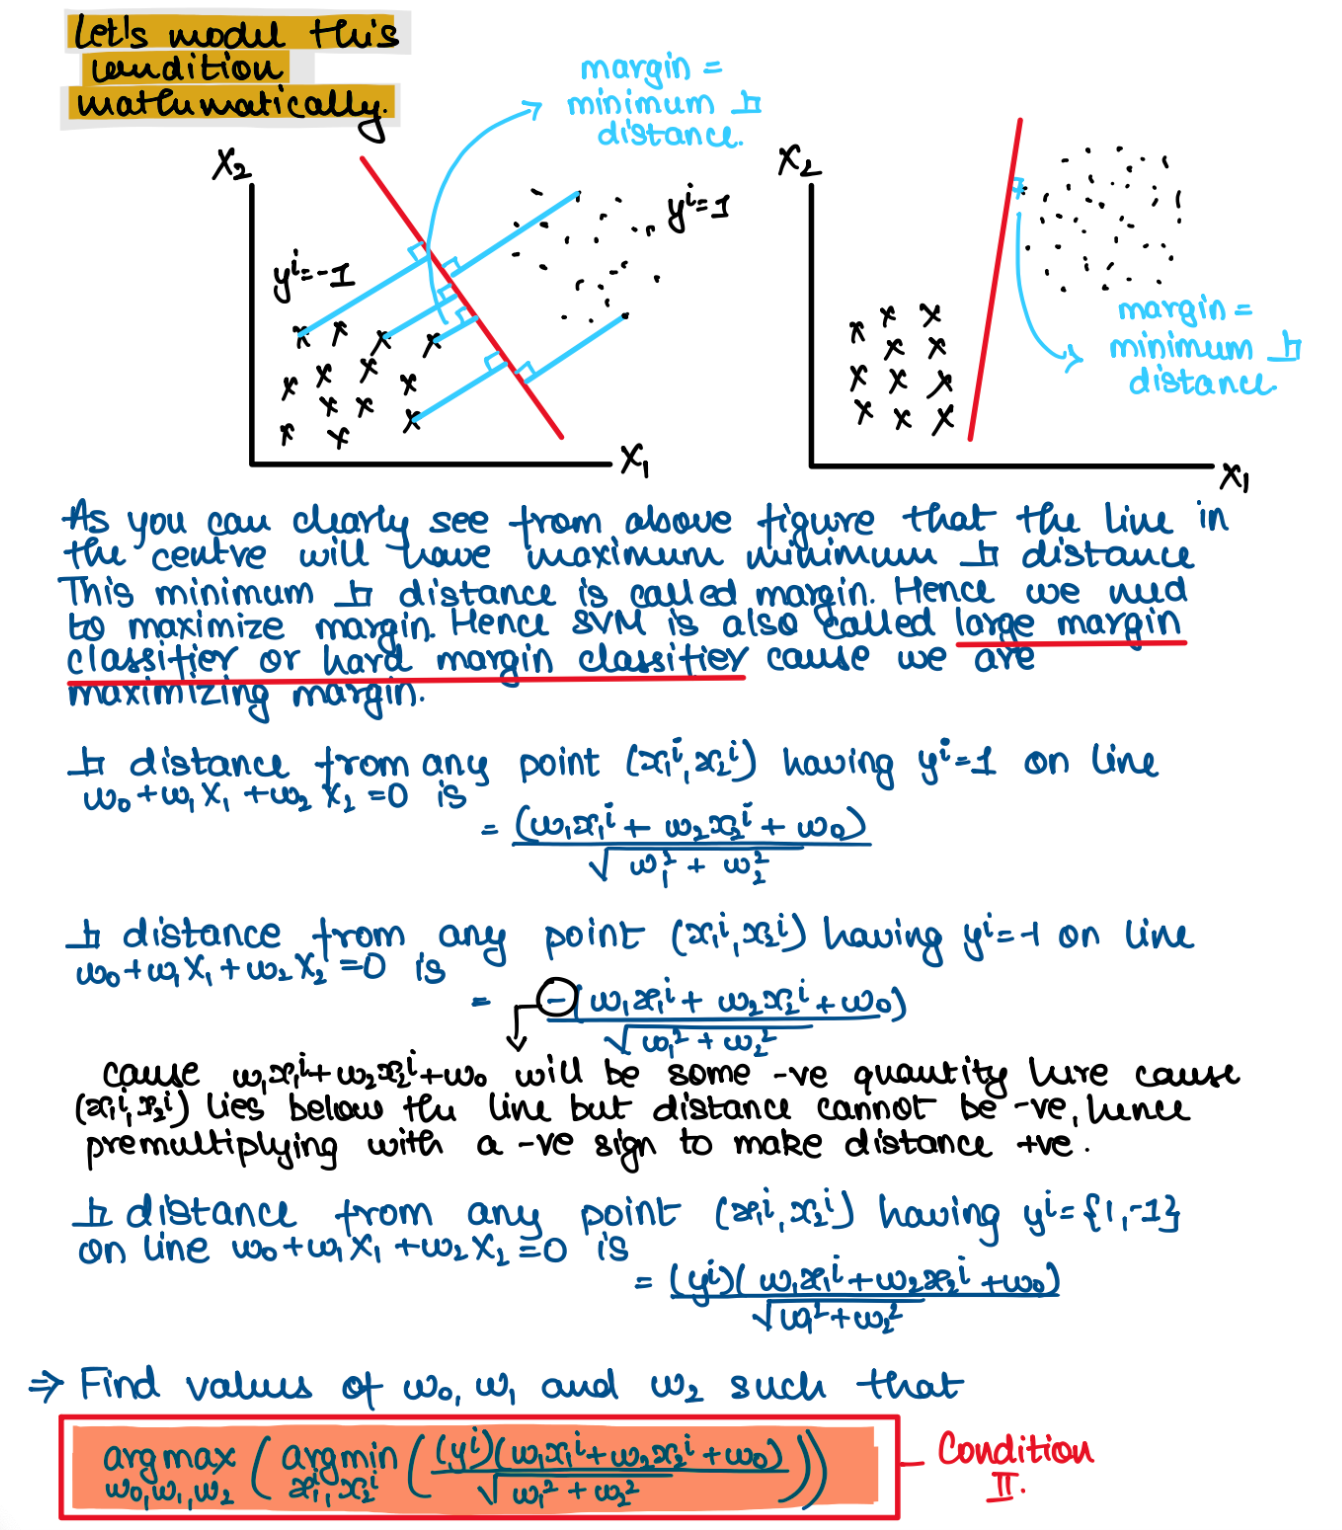 Let's model this
condition
mathematically.
margin =
minimum ⊥
distance.
X₂
yⁱ=1
yⁱ=-1
X₁
X₂
margin =
minimum ⊥
distance.
X₁
As you can clearly see from above figure that the line in
the centre will have maximum minimum ⊥ distance
This minimum ⊥ distance is called margin. Hence we need
to maximize margin. Hence SVM is also called large margin
classifier or hard margin classifier cause we are
maximizing margin.
⊥ distance from any point (x₁ⁱ, x₂ⁱ) having yⁱ=1 on line
w₀+w₁X₁+w₂X₂=0 is
= (w₁x₁ⁱ + w₂x₂ⁱ + w₀)
√w₁² + w₂²
⊥ distance from any point (x₁ⁱ, x₂ⁱ) having yⁱ=-1 on line
w₀+w₁X₁+w₂X₂=0 is
= -(w₁x₁ⁱ + w₂x₂ⁱ + w₀)
√w₁² + w₂²
cause w₁x₁ⁱ+w₂x₂ⁱ+w₀ will be some -ve quantity here cause
(x₁ⁱ, x₂ⁱ) lies below the line but distance cannot be -ve, hence
premultiplying with a -ve sign to make distance +ve.
⊥ distance from any point (x₁ⁱ, x₂ⁱ) having yⁱ={1,-1}
on line w₀+w₁X₁+w₂X₂=0 is
= (yⁱ)(w₁x₁ⁱ+w₂x₂ⁱ+w₀)
√w₁²+w₂²
⇒ Find values of w₀, w₁ and w₂ such that
arg max ( arg min ( (yⁱ)(w₁x₁ⁱ+w₂x₂ⁱ+w₀) ))
w₀,w₁,w₂ x₁ⁱ, x₂ⁱ √w₁² + w₂²
Condition
II.